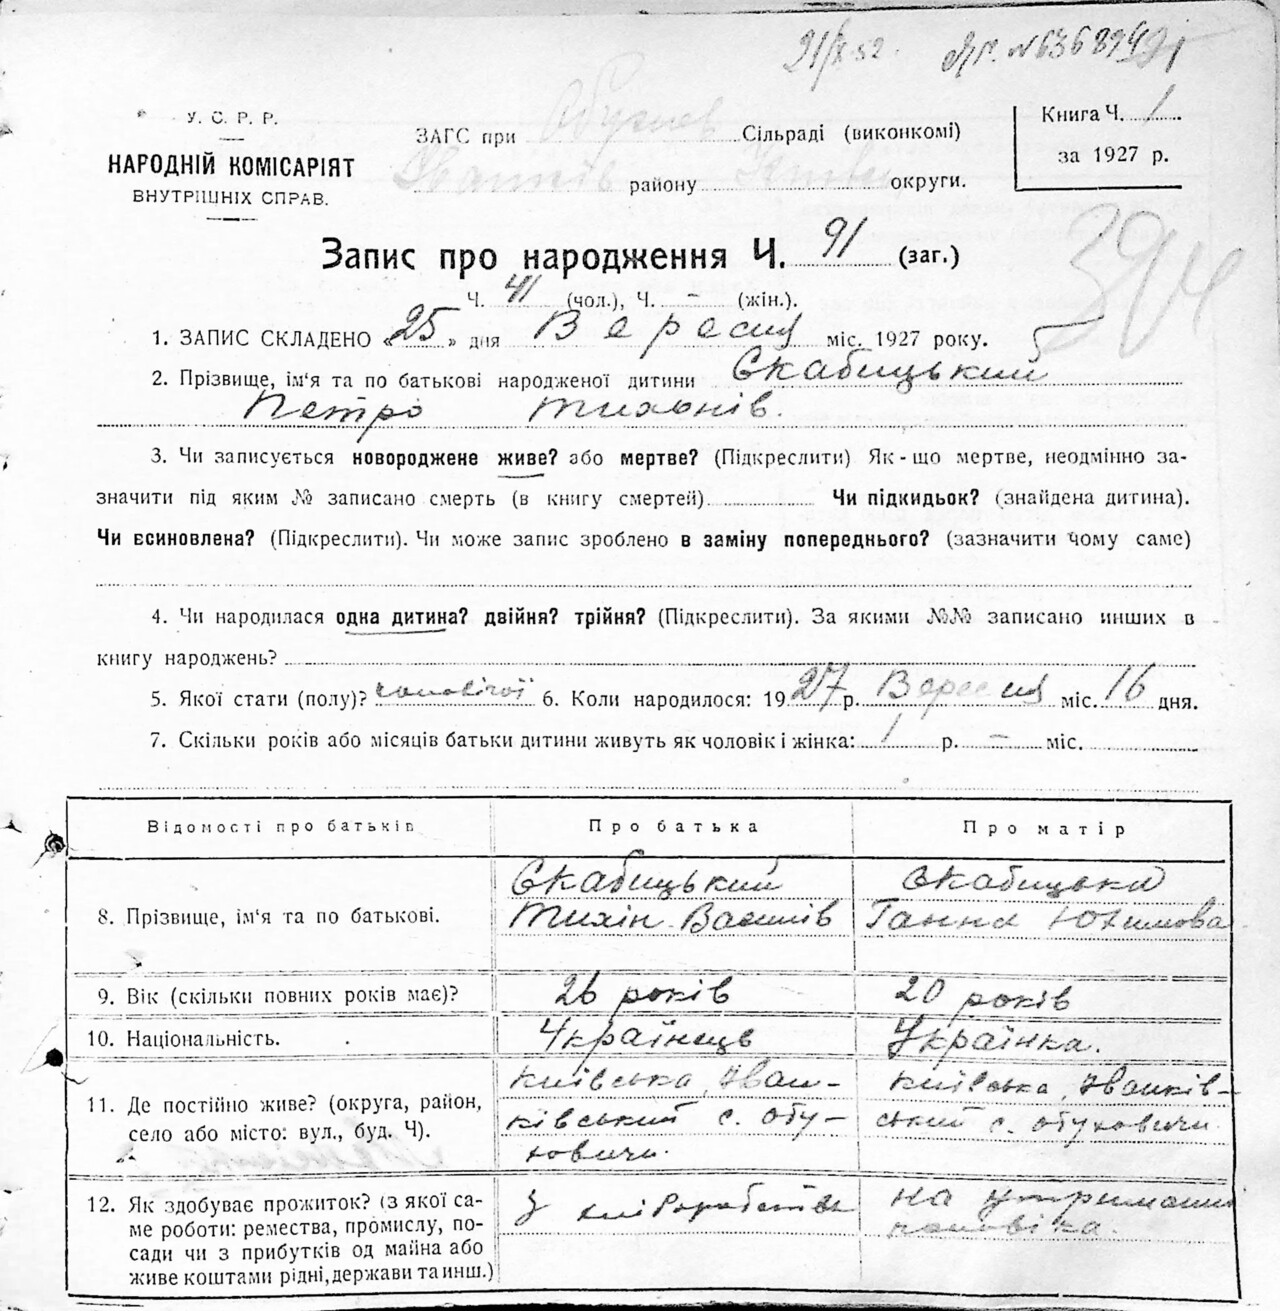 21/X 52.
У. С. Р. Р.
НАРОДНІЙ КОМІСАРІЯТ
ВНУТРІШНІХ СПРАВ.
ЗАГС при Обухов Сільраді (виконкомі)
Іванків району Київ округи.
Книга Ч. 1
за 1927 р.
Запис про народження Ч. 91 (заг.)
Ч. 41 (чол.), Ч. – (жін.).
1. ЗАПИС СКЛАДЕНО «25» дня Вересня міс. 1927 року.
2. Прізвище, ім'я та по батькові народженої дитини Скабицький
Петро Тихонів.
3. Чи записується новороджене живе? або мертве? (Підкреслити) Як-що мертве, неодмінно за-
значити під яким № записано смерть (в книгу смертей) Чи підкидьок? (знайдена дитина).
Чи єсиновлена? (Підкреслити). Чи може запис зроблено в заміну попереднього? (зазначити чому саме)
4. Чи народилася одна дитина? двійня? трійня? (Підкреслити). За якими №№ записано инших в
книгу народжень?
5. Якої стати (полу)? чоловічої 6. Коли народилося: 1927 р. Вересня міс. 16 дня.
7. Скільки років або місяців батьки дитини живуть як чоловік і жінка: 1 р. – міс.
Відомості про батьків Про батька Про матір
8. Прізвище, ім'я та по батькові.
Скабицький
Тихін Василів
Скабицька
Ганна Юхимова
9. Вік (скільки повних років має)? 26 років 20 років
10. Національність. Українець Українка.
11. Де постійно живе? (округа, район,
село або місто: вул., буд. Ч).
Київська, Іван-
ківський с. Обу-
ховичи.
Київська, Іванків-
ський с. Обуховичи
12. Як здобуває прожиток? (з якої са-
ме роботи: ремества, промислу, по-
сади чи з прибутків од майна або
живе коштами рідні, держави та инш.)
З хліборобства
на утриманні
чоловіка.